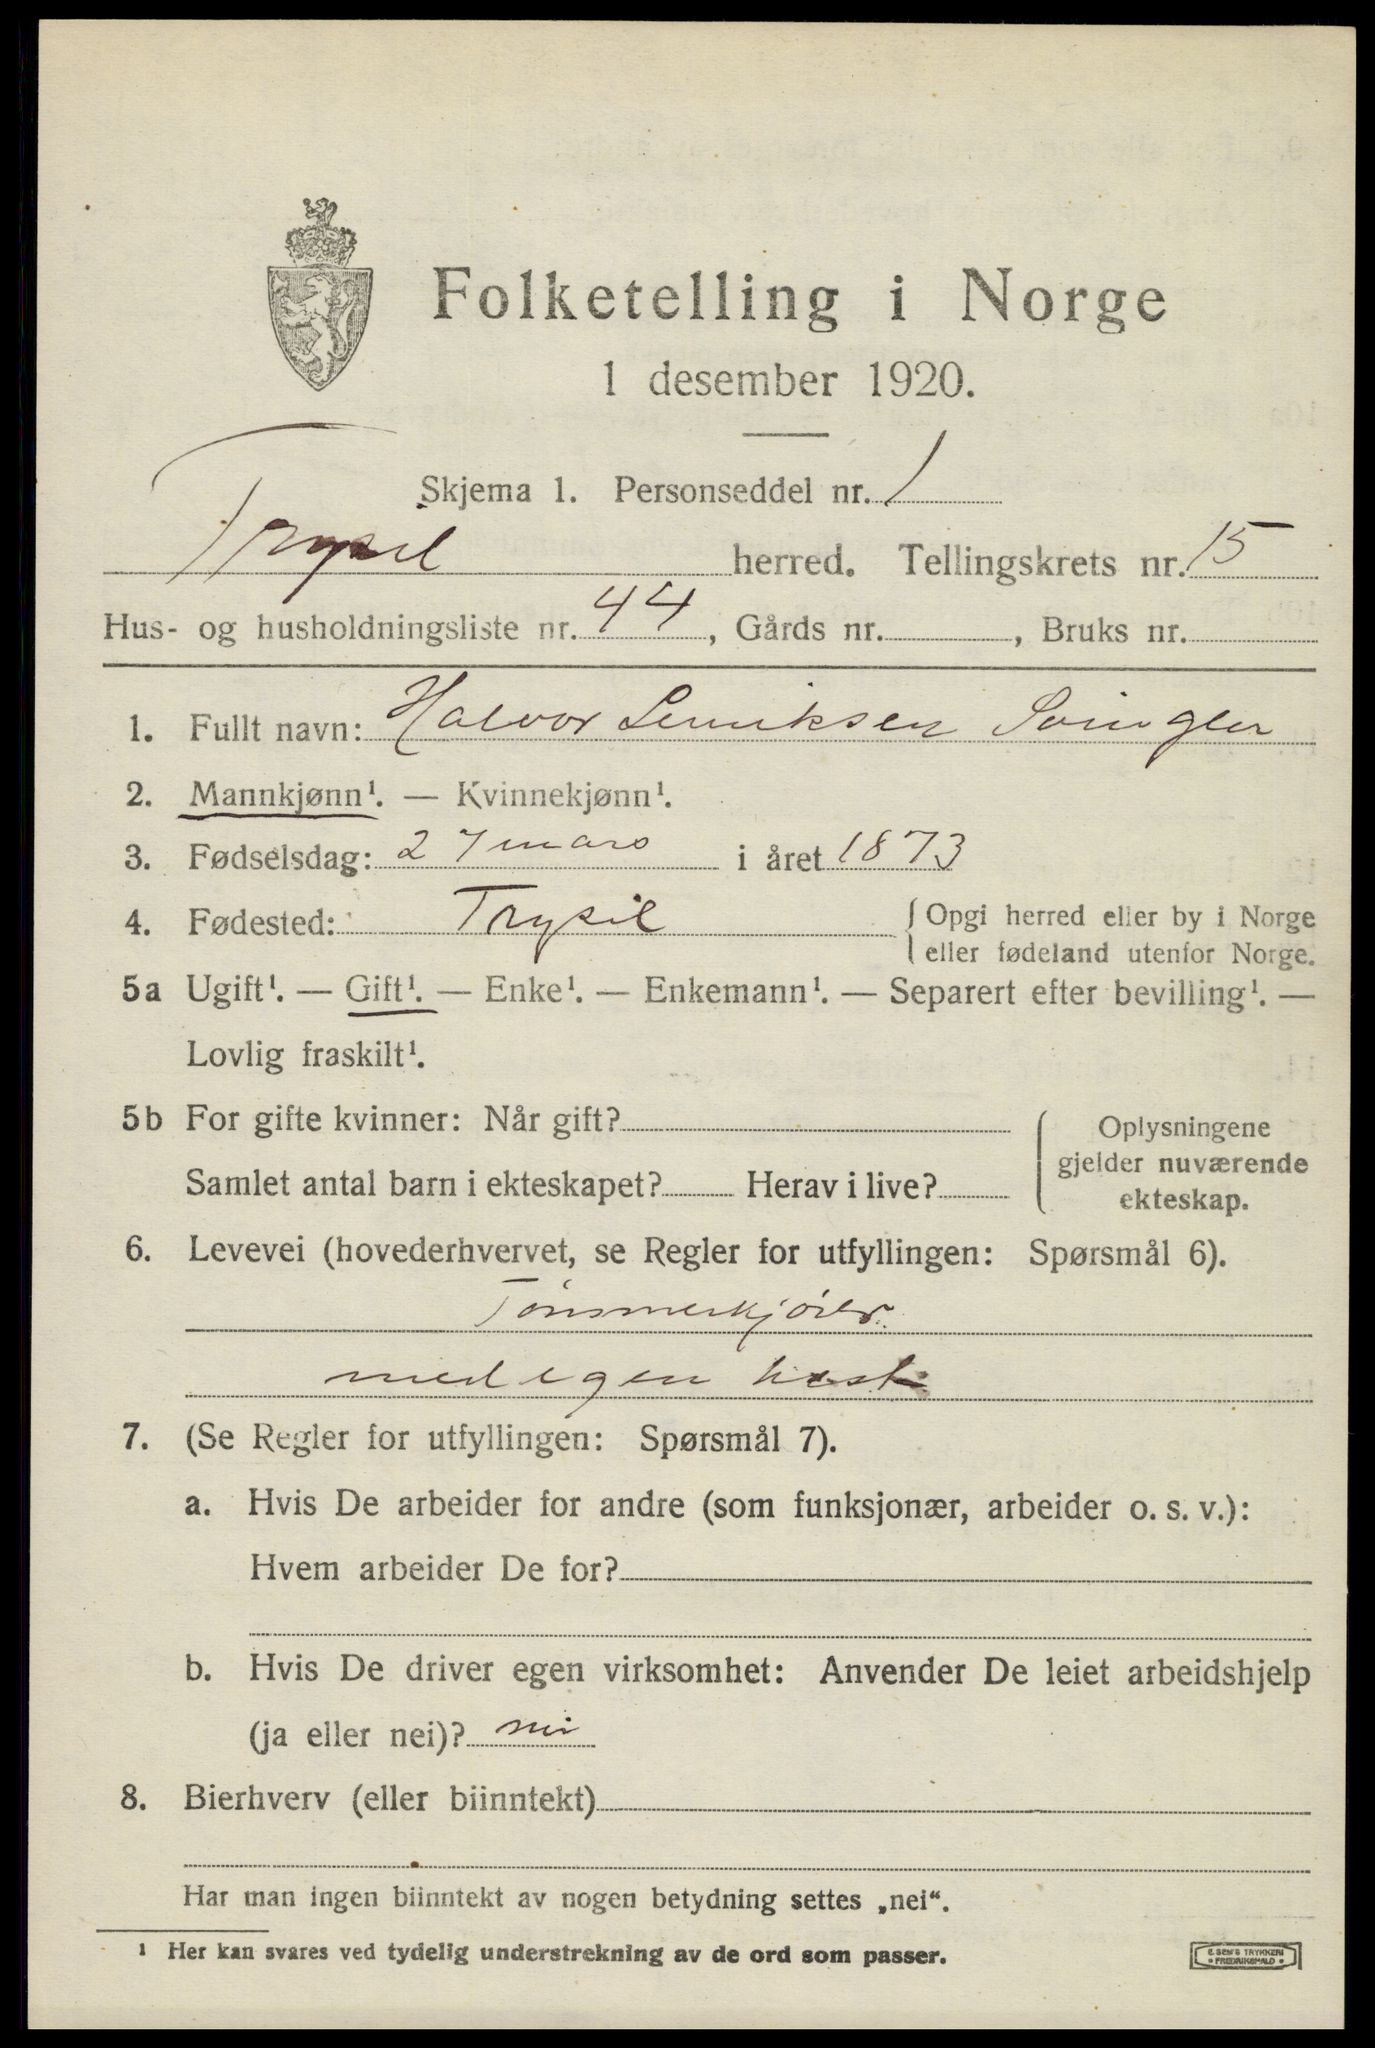 Folketelling i Norge
1 desember 1920.
Skjema 1. Personseddel nr. 1
Trysil herred. Tellingskrets nr. 15
Hus- og husholdningsliste nr. 44, Gårds nr. , Bruks nr.
1. Fullt navn: Halvor
2. Mannkjønn¹. — Kvinnekjønn¹.
3. Fødselsdag: 27 mars i året 1873
4. Fødested: Trysil { Opgi herred eller by i Norge
eller fødeland utenfor Norge.
5a Ugift¹. — Gift¹. — Enke¹. — Enkemann¹. — Separert efter bevilling¹. —
Lovlig fraskilt¹.
5b For gifte kvinner: Når gift? { Oplysningene
gjelder nuværende
Samlet antal barn i ekteskapet? Herav i live?
ekteskap.
6. Levevei (hovederhvervet, se Regler for utfyllingen: Spørsmål 6).
Tømmerkjører
med egen hest
7. (Se Regler for utfyllingen: Spørsmål 7).
a. Hvis De arbeider for andre (som funksjonær, arbeider o. s. v.):
Hvem arbeider De for?
b. Hvis De driver egen virksomhet: Anvender De leiet arbeidshjelp
(ja eller nei)? nei
8. Bierhverv (eller biinntekt)
Har man ingen biinntekt av nogen betydning settes „nei“.
¹ Her kan svares ved tydelig understrekning av de ord som passer.
E. SEM'S TRYKKERI
• FREDRIKSHALD •